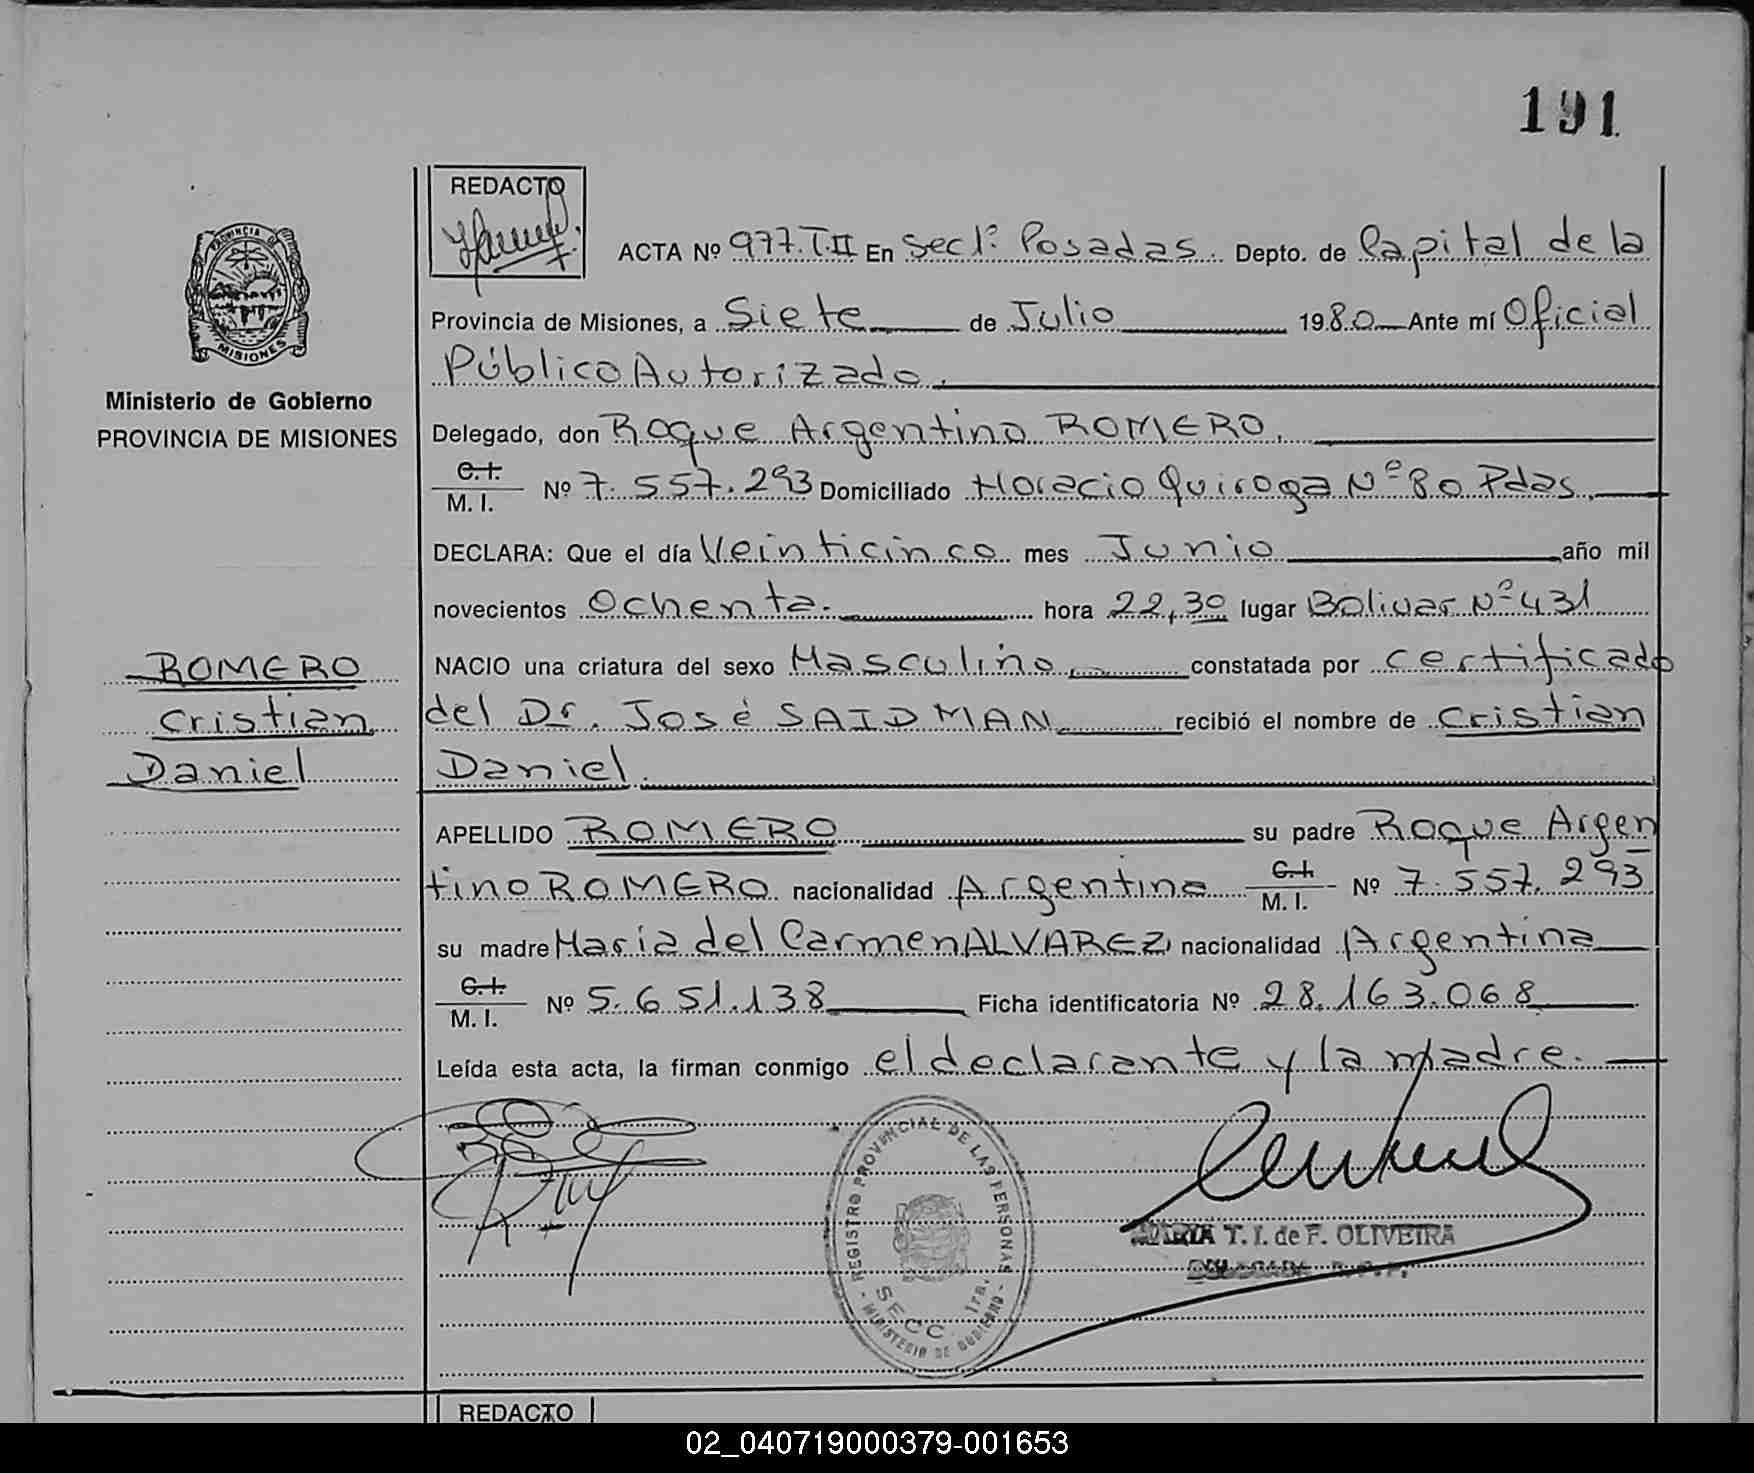 191
REDACTO
ACTA Nº 977.T.II En Secl: Posadas. Depto. de Capital de la
Provincia de Misiones, a Siete de Julio 1980 Ante mí Oficial
Público Autorizado.
Ministerio de Gobierno
PROVINCIA DE MISIONES
Delegado, don Roque Argentino ROMERO.
C.I.
M. I. Nº 7.557.293 Domiciliado Horacio Quiroga Nº 80 Pdas.
DECLARA: Que el día Veinticinco mes Junio año mil
novecientos Ochenta. hora 22,30 lugar Bolivar Nº 431
NACIO una criatura del sexo Masculino constatada por certificado
del Dr. José SAIDMAN recibió el nombre de Cristian
Daniel.
ROMERO
Cristian
Daniel
APELLIDO ROMERO su padre Roque Argen
tino ROMERO nacionalidad Argentina C.I. M. I. Nº 7.557.293
su madre Maria del Carmen ALVAREZ, nacionalidad Argentina
C.I.
M. I. Nº 5.651.138 Ficha identificatoria Nº 28.163.068
Leída esta acta, la firman conmigo el declarante y la madre.
REGISTRO PROVINCIAL DE LAS PERSONAS
SECC. 1ra.
MINISTERIO DE GOBIERNO
MARIA T. I. de F. OLIVEIRA
DELEGADA R. P. P.
REDACTO
02_040719000379-001653